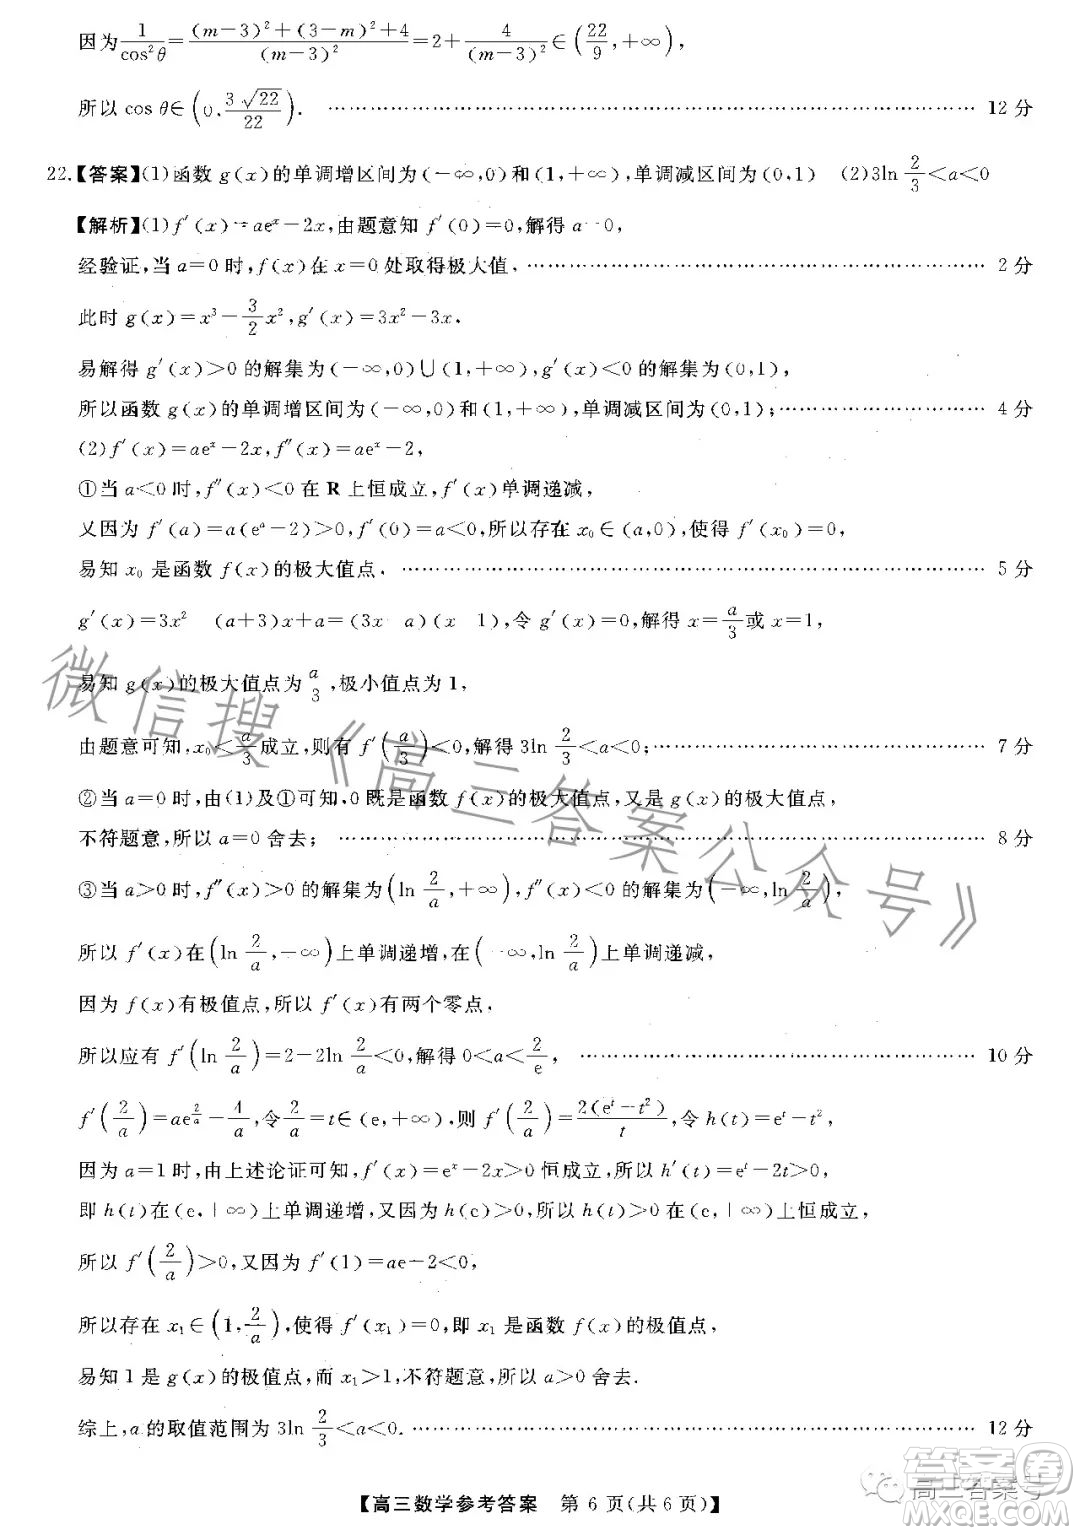 因为1/cos²θ=((m-3)²+(3-m)²+4)/(m-3)²=2+4/(m-3)²∈(22/9,+∞),
所以 cos θ∈(0,3√22/22). ………… 12 分
22.【答案】(1)函数 g(x)的单调增区间为(-∞,0)和(1,+∞),单调减区间为(0,1) (2)3ln 2/3<a<0
【解析】(1)f′(x)=aeˣ-2x,由题意知 f′(0)=0,解得 a=0,
经验证,当 a=0 时,f(x)在 x=0 处取得极大值. ………… 2 分
此时 g(x)=x³-3/2x²,g′(x)=3x²-3x.
易解得 g′(x)>0 的解集为(-∞,0)∪(1,+∞),g′(x)<0 的解集为(0,1),
所以函数 g(x)的单调增区间为(-∞,0)和(1,+∞),单调减区间为(0,1);………… 4 分
(2)f′(x)=aeˣ-2x,f″(x)=aeˣ-2,
①当 a<0 时,f″(x)<0 在 R 上恒成立,f′(x)单调递减,
又因为 f′(a)=a(eᵃ-2)>0,f′(0)=a<0,所以存在 x₀∈(a,0),使得 f′(x₀)=0,
易知 x₀ 是函数 f(x)的极大值点. ………… 5 分
g′(x)=3x² (a+3)x+a=(3x a)(x 1),令 g′(x)=0,解得 x=a/3或 x=1,
易知 g(x)的极大值点为 a/3,极小值点为 1,
由题意可知,x₀<a/3成立,则有 f′(a/3)<0,解得 3ln 2/3<a<0;………… 7 分
②当 a=0 时,由(1)及①可知,0 既是函数 f(x)的极大值点,又是 g(x)的极大值点,
不符题意,所以 a=0 舍去; ………… 8 分
③当 a>0 时,f″(x)>0 的解集为(ln 2/a,+∞),f″(x)<0 的解集为(-∞,ln 2/a),
所以 f′(x)在(ln 2/a,-∞)上单调递增,在(-∞,ln 2/a)上单调递减,
因为 f(x)有极值点,所以 f′(x)有两个零点,
所以应有 f′(ln 2/a)=2-2ln 2/a<0,解得 0<a<2/e, ………… 10 分
f′(2/a)=ae^(2/a)-4/a,令2/a=t∈(e,+∞),则 f′(2/a)=2(eᵗ-t²)/t,令 h(t)=eᵗ-t²,
因为 a=1 时,由上述论证可知,f′(x)=eˣ-2x>0 恒成立,所以 h′(t)=eᵗ-2t>0,
即 h(t)在(e,+∞)上单调递增,又因为 h(e)>0,所以 h(t)>0 在(e,+∞)上恒成立,
所以 f′(2/a)>0,又因为 f′(1)=ae-2<0,
所以存在 x₁∈(1,2/a),使得 f′(x₁)=0,即 x₁ 是函数 f(x)的极值点,
易知 1 是 g(x)的极值点,而 x₁>1,不符题意,所以 a>0 舍去.
综上,a 的取值范围为 3ln 2/3<a<0. ………… 12 分
【高三数学参考答案 第 6 页(共 6 页)】
微信搜《高三答案公众号》
高三答案号
答案圈
MXQE.COM